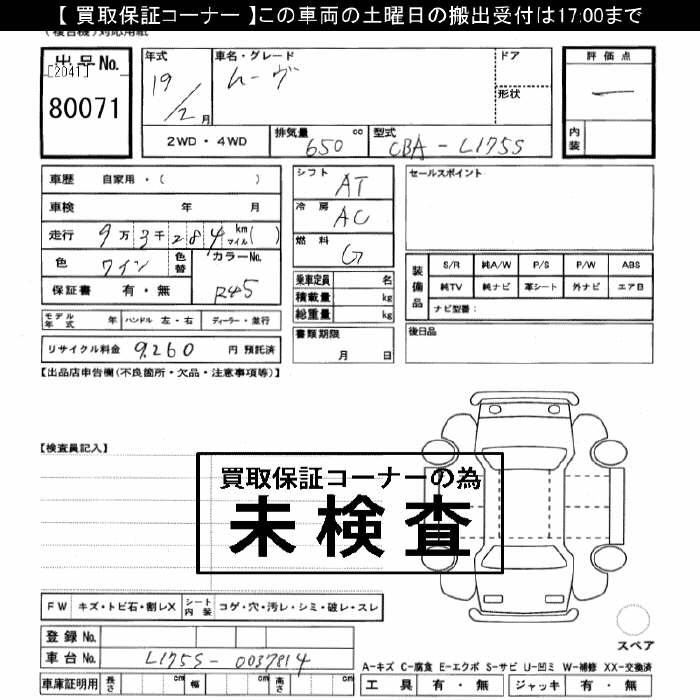 【 買取保証コーナー 】この車両の土曜日の搬出受付は17:00まで
(複合機)対応用紙
出品No.
[2041]
80071
年式
19/2月
車名・グレード
ムーヴ
ドア
形状
2WD・4WD
排気量 650 cc
型式 CBA-L175S
評価点
―
内装
車歴 自家用・( )
車検 年 月
走行 9万3千284 km マイル( )
色 ワイン 色替 カラーNo. R45
保証書 有・無
モデル年式 年 ハンドル 左・右 ディーラー・並行
リサイクル料金 9,260 円 預託済
シフト AT
冷房 AC
燃料 G
乗車定員 名
積載量 kg
総重量 kg
書類期限
月 日
セールスポイント
装備品
S/R 純A/W P/S P/W ABS
純TV 純ナビ 革シート 外ナビ エアB
ナビ型番:
後日品
【出品店申告欄(不良箇所・欠品・注意事項等)】
【検査員記入】
買取保証コーナーの為
未検査
FW キズ・トビ石・割レX シート内装 コゲ・穴・汚レ・シミ・破レ・スレ
登録No.
車台No. L175S-0037814
車庫証明用 長さ cm 幅 cm 高さ cm
スペア
A-キズ C-腐食 E-エクボ S-サビ U-凹ミ W-補修 XX-交換済
工具 有・無 ジャッキ 有・無